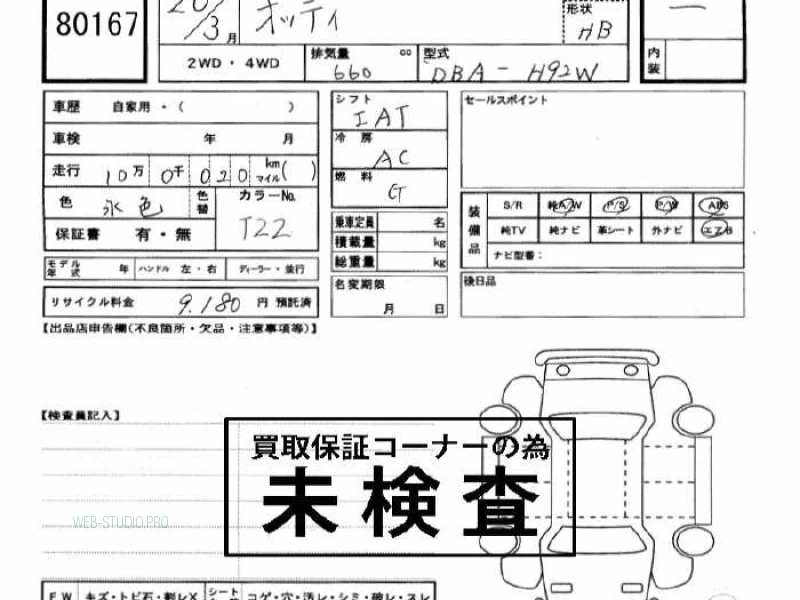 80167
20/3月
オッティ
形状
HB
内装
2WD・4WD
排気量 cc
660
型式
DBA-H92W
車歴 自家用・( )
車検 年 月
走行 10万 0千 020 km マイル ( )
色 水色 色替 カラーNo. T22
保証書 有・無
モデル年式 年 ハンドル 左・右 ディーラー・並行
リサイクル料金 9,180 円 預託済
シフト
IAT
冷房
AC
燃料
G
乗車定員 名
積載量 kg
総重量 kg
名変期限
月 日
セールスポイント
装備品
S/R 純A/W P/S P/W ABS
純TV 純ナビ 革シート 外ナビ エアB
ナビ型番:
後日品
【出品店申告欄(不良箇所・欠品・注意事項等)】
【検査員記入】
買取保証コーナーの為
未検査
WEB-STUDIO.PRO
FW キズ・トビ石・割レX シート コゲ・穴・汚レ・シミ・破レ・スレ